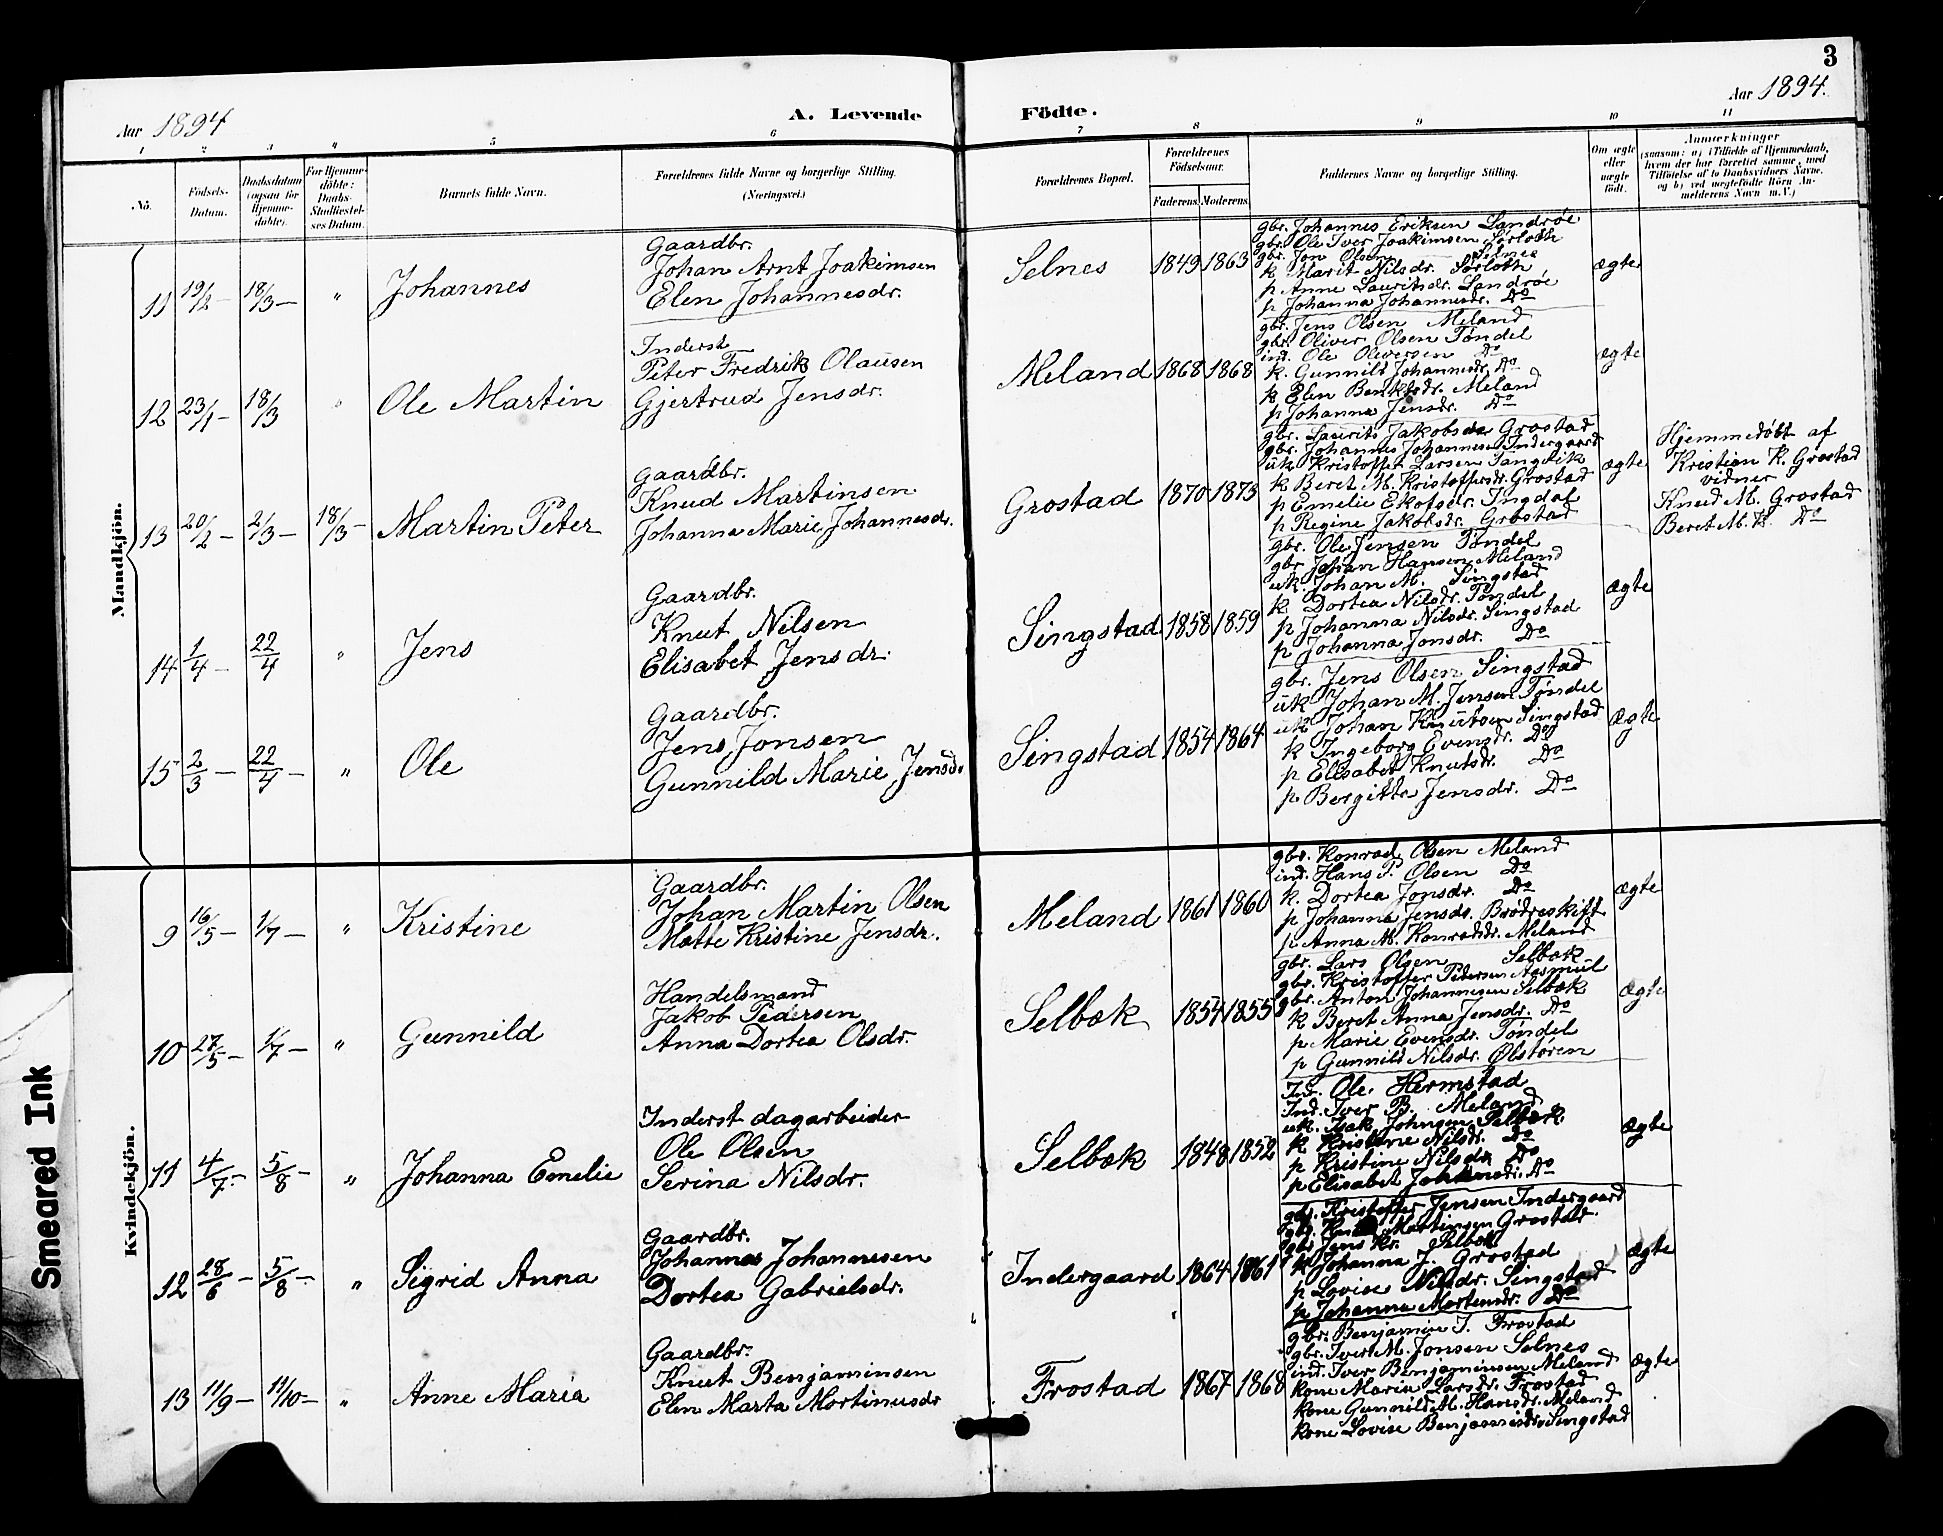 3
Aar 1894
A. Levende Födte.
Aar 1894.
1 2 3 4 5 6 7 8 9 10 11
No. Födsels-Datum. Daabsdatum (ogsaa for Hjemme-döbte). For Hjemme-döbte: Daabs-Stadfæstel-ses Datum. Barnets fulde Navn. Forældrenes fulde Navne og borgerlige Stilling. (Næringsvei.) Forældrenes Bopæl. Forældrenes Födselsaar. Faderens. Moderens. Faddernes Navne og borgerlige Stilling. Om ægte eller uægte födt. Anmærkninger (saasom: a) i Tilfælde af Hjemmedaab, hvem der har forrettet samme, med Tilföielse af to Daabsvidners Navne, og b) ved uægtefödte Börn An-melderens Navn m.V.)
Mandkjön.
11 19/2 - 18/3 - " Johannes
Gaardbr.
Johan Arnt Joakimsen
Elen Johannesdr.
Selnes 1849 1863
gbr. Johannes Eriksen Landrøe
gbr. Ole Iver Joakimsen Sørloth
gbr. Jon Olsen Selnes
k Marit Nilsdr. Sørloth
p Anne Lauritsdr. Landrøe
p Johanna Johannesdr. Do
ægte
12 23/1 - 18/3 " Ole Martin
Inderst
Peter Fredrik Olausen
Gjertrud Jensdr.
Meland 1868 1868
gbr. Jens Olsen Meland
gbr. Oliver Olsen Tøndel
ind. Ole Oliversen Do
k. Gunnild Johannesdr. Do
k Elen Bentsdr. Meland
p Johanna Jensdr. Do
ægte
13 20/2 - 2/3 - 18/3 - Martin Peter
Gaardbr.
Knud Martinsen
Johanna Marie Johannesdr.
Grostad 1870 1873
gbr. Laurits Jakobsen Grostad
gbr. Johannes Johannesen Indergaard
uk Kristoffer Larsen Tangvik
k Beret M. Kristoffersdr. Grostad
p Emelie Ekofsdr. Ingdal
p Regine Jakobsdr. Grostad
ægte
Hjemmedøbt af
Kristian K. Grostad
vidner
Knud M. Grostad
Beret M. K. Do
14 1/4 - 22/4 " Jens
Gaardbr.
Knut Nilsen
Elisabet Jensdr.
Singstad 1858 1859
gbr. Ole Jensen Tøndel
gbr Johan Hansen Meland
uk Johan M. Singstad
k Dortea Nilsdr. Tøndel
p Johanna Nilsdr. Singstad
p Johanna Jonsdr. Do
ægte
15 2/3 - 22/4 - " Ole
Gaardbr.
Jens Jonsen
Gunnild Marie Jensdr
Singstad 1854 1864
gbr. Jens Olsen Singstad
uk Johan M. Jensen Tøndel
uk Johan Knutsen Singstad
k Ingeborg Evensdr. Do
p Elisabet Knutsdr. Do
p. Bergitte Jensdr. Do
ægte
Kvindekjön.
9 16/5 - 1/7 - " Kristine
Gaardbr.
Johan Martin Olsen
Mette Kristine Jensdr.
Meland 1861 1860
gbr. Konrad Olsen Meland
ind. Hans P. Olsen Do
k. Dortea Jonsdr. Do
p Johanna Jensdr. Brødreskift
p. Anna M. Konradsdr. Meland
ægte
10 27/5 - 1/7 - " Gunnild
Handelsmand
Jakob Pedersen
Anna Dortea Olsdr.
Selbæk 1854 1855
gbr. Lars Olsen Selbæk
gbr. Kristoffer Pedersen Aasmul
gbr. Anton Johannesen Selbæk
k Beret Anna Jensdr. Do
p Marie Evensdr. Tøndel
p Gunnild Nilsdr. Ølstøren
ægte
11 4/7 - 5/8 - " Johanna Emelie
Inderst dagarbeider
Ole Olsen
Serina Nilsdr.
Selbæk 1848 1852
Ind. Ole Hermstad
Ind. Iver B. Meland
uk. Isak Johnsen Selbæk
k Kristine Nilsdr. Do
p Kristine Nilsdr. Do
p Elisabet Do
ægte
12 28/6 - 5/8 - " Sigrid Anna
Gaardbr.
Johannes Johannesen
Dortea Gabrielsdr.
Indergaard 1864 1861
gbr. Kristoffer Jensen Indergaard
gbr. Martinsen Grostad
gbr Jens Kr. Selbæk
k Johanna J. Grostad
p Lovise Nilsdr. Singstad
p Johanna Mortensdr. Do
ægte
13 11/9 - 11/10 - " Anne Maria
Gaardbr.
Knut Benjaminsen
Elen Marta Mortinusdr
Frostad 1867 1868
gbr. Benjamin I. Frostad
gbr. Ivert M. Jonsen Selnes
ind. Iver Benjaminsen Meland
kone Marie Larsdr. Frostad
kone Gunnild M. Hansdr. Meland
kone Lovise Benjaminsdr. Singstad
ægte
Smeared Ink